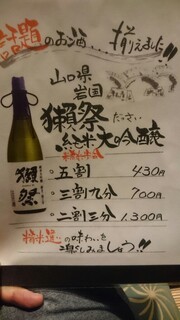 話題のお酒...揃えました!!
山口県
岩国
獺祭 だっさい
純米大吟醸
精米歩合
・五割 430円
・三割九分 700円
・二割三分 1,300円
の味わいを
楽しみましょう!!
獺祭